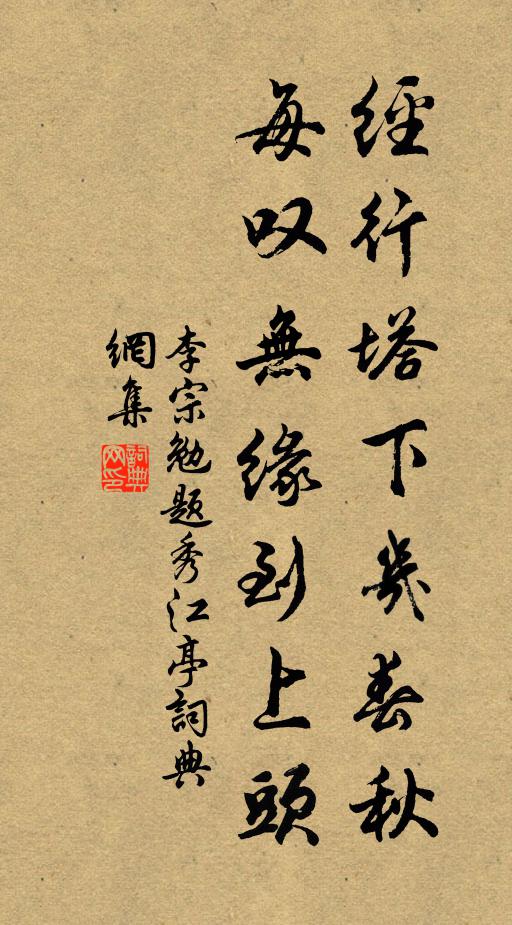 經行塔下幾春秋
每叹無緣到上頭
李宗勉题秀江亭詞典
網集
詞典
网印